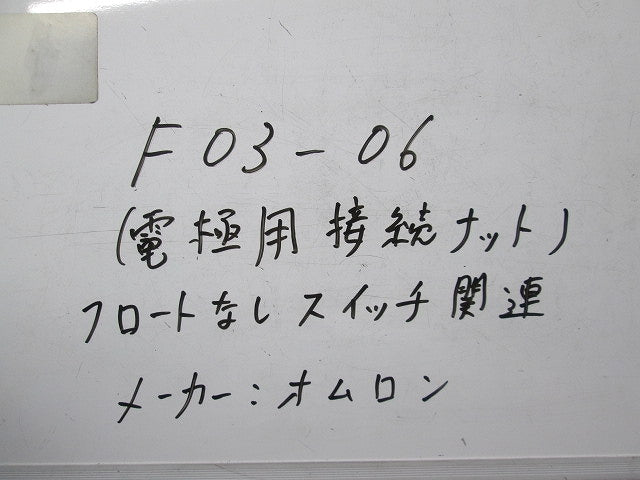 F03-06
(電極用接続ナット)
フロートなしスイッチ関連
メーカー:オムロン